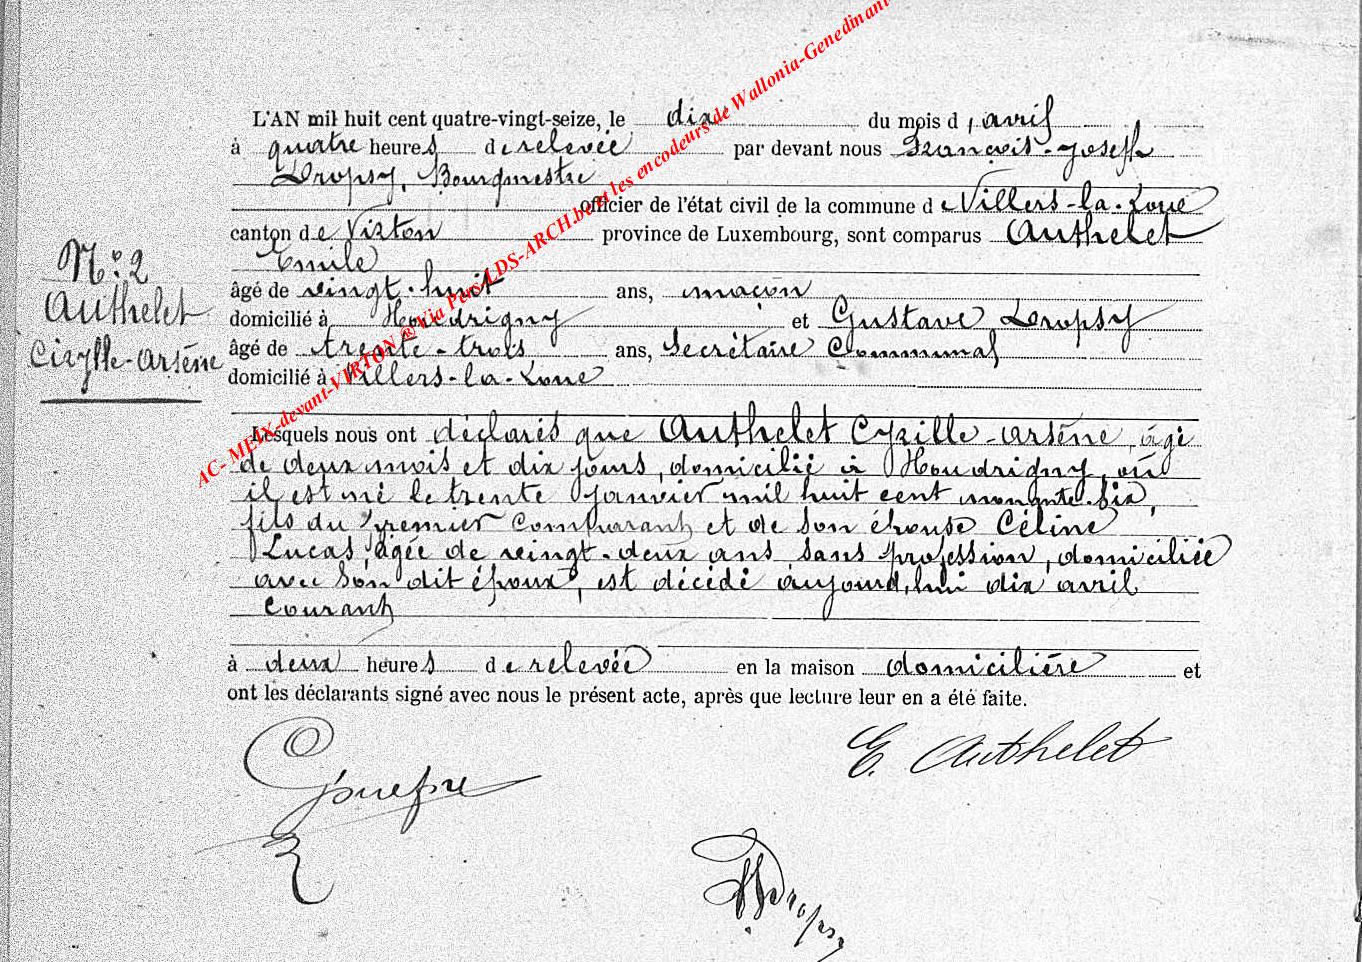 L'AN mil huit cent quatre-vingt-seize, le dix du mois d'avril
à quatre heures de relevée par devant nous François-Joseph
Dropsy, Bourgmestre
officier de l'état civil de la commune de Villers-la-Loue
canton de Virton province de Luxembourg, sont comparus Authelet
Emile
âgé de vingt-huit ans, maçon
domicilié à Houdrigny et Gustave Dropsy
âgé de trente-trois ans, Secrétaire Communal
domicilié à Villers-la-Loue
N.º 2
Authelet
Cirylle-Arsène
Lesquels nous ont déclarés que Authelet Cyrille-Arsène, âgé
de deux mois et dix jours, domicilié à Houdrigny, où
il est né le trente Janvier mil huit cent nonante-six,
fils du premier comparant et de son épouse Céline
Lucas, âgée de vingt-deux ans sans profession, domiciliée
avec son dit époux, est décédé aujourd'hui dix avril
Courant
à deux heures de relevée en la maison domicilière et
ont les déclarants signé avec nous le présent acte, après que lecture leur en a été faite.
E. Authelet
Dropsy
AC- MEIX-devant-VIRTON ® Via Pers LDS-ARCH.be et les encodeurs de Wallonia-Genedinant